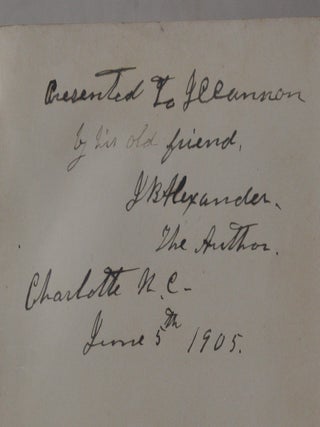 Presented To JCCannon
by his old friend,
JBAlexander.
The Author.
Charlotte N. C-
June 5th 1905.